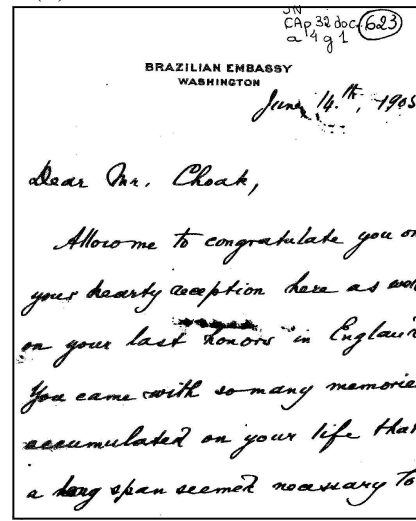 CAp 32 doc 623
a 4 g 1
BRAZILIAN EMBASSY
WASHINGTON
June 14.th, 1905
Dear Mr. Choak,
Allow me to congratulate you on
your hearty reception here as well
on your last honors in England
You came with so many memories
accumulated on your life that
a long span seemed necessary to